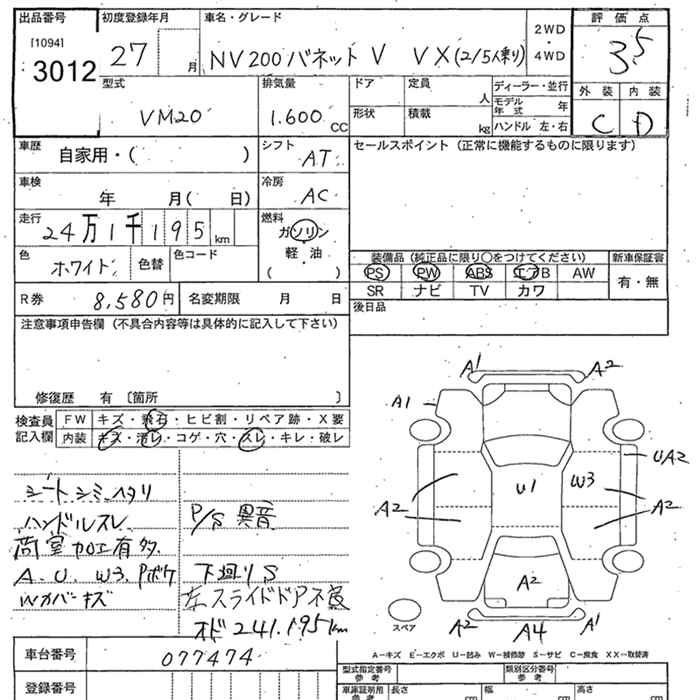 出品番号 初度登録年月 車名・グレード 評価点
[1094]
3012
27 月
NV200バネットV VX(2/5人乗り)
2WD
・
4WD
3.5
型式 VM20
排気量 1.600 CC
ドア 定員 人
形状 積載 kg
ディーラー・並行
モデル年式 年
ハンドル 左・右
外装 内装
C D
車歴 自家用・( )
シフト AT
セールスポイント(正常に機能するものに限ります)
車検 年 月( 日)
冷房 AC
走行 24万1千195km
燃料 ガソリン
軽・油
( )
色 ホワイト 色替 色コード
装備品(純正品に限り○をつけてください) 新車保証書
PS PW ABS エアB AW 有・無
SR ナビ TV カワ
R券 8,580円 名変期限 月 日
後日品
注意事項申告欄(不具合内容等は具体的に記入して下さい)
修復歴 有 〔箇所 〕
検査員記入欄
FW キズ・飛石・ヒビ割・リペア跡・X要
内装 キズ・汚レ・コゲ・穴・スレ・キレ・破レ
シートシミ、ヘタリ
ハンドルスレ
荷室加工有多
A.U.W3.Pボケ
Wカバーキズ
P/S異音
下廻りS
左スライドドア不良
オド241.195km
A1 A2
A1
UA2
U1 W3
A2 A2
A2
スペア
A2 A4 A1
A-キズ E-エクボ U-凹み W-補修跡 S-サビ C-腐食 XX-取替済
車台番号 077474
型式指定番号 参考 類別区分番号 参考
登録番号
車庫証明用 参考 長さ cm 幅 cm 高さ cm